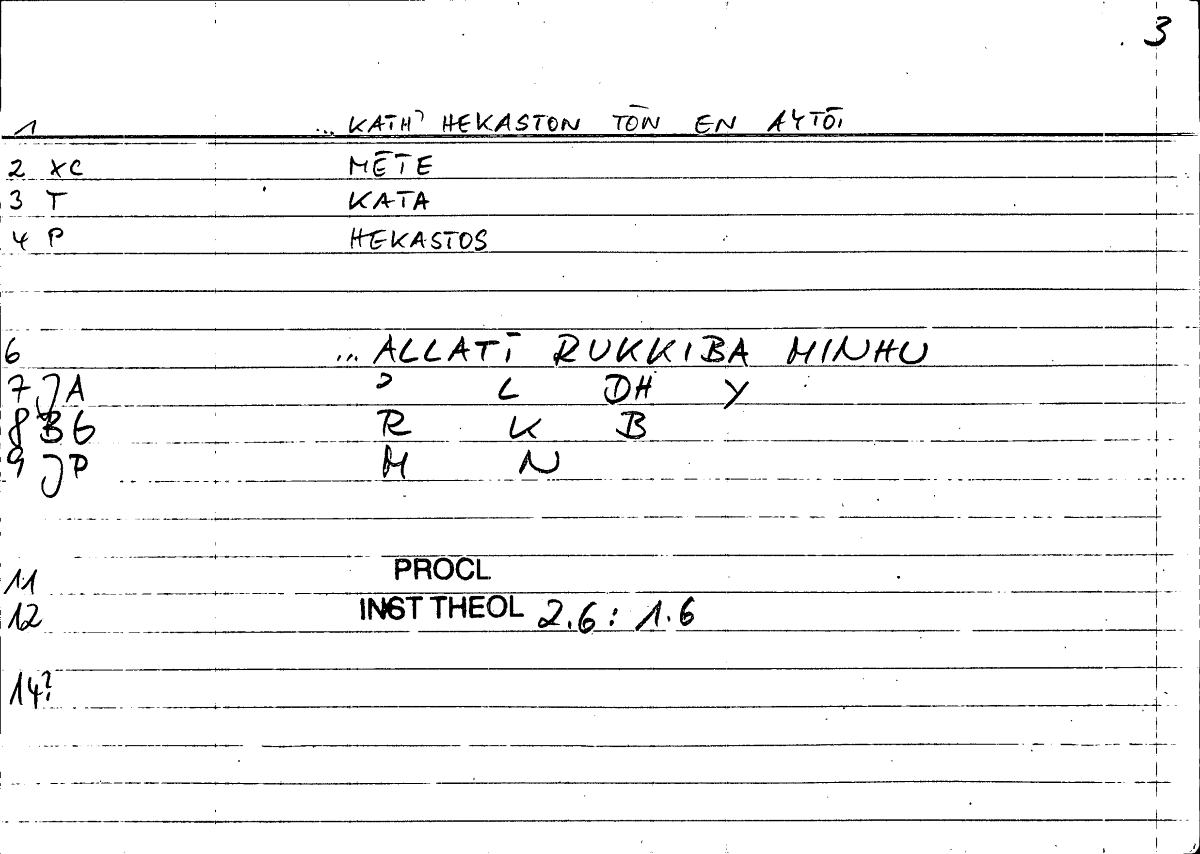 3
1 ... KATH' HEKASTON TŌN EN AYTŌI
2 XC MĒTE
3 T KATA
4 P HEKASTOS
6 ... ALLATĪ RUKKIBA MINHU
7 JA ' L DH Y
8 BG R K B
9 JP M N
11 PROCL
12 INST THEOL 2.6: 1.6
14?